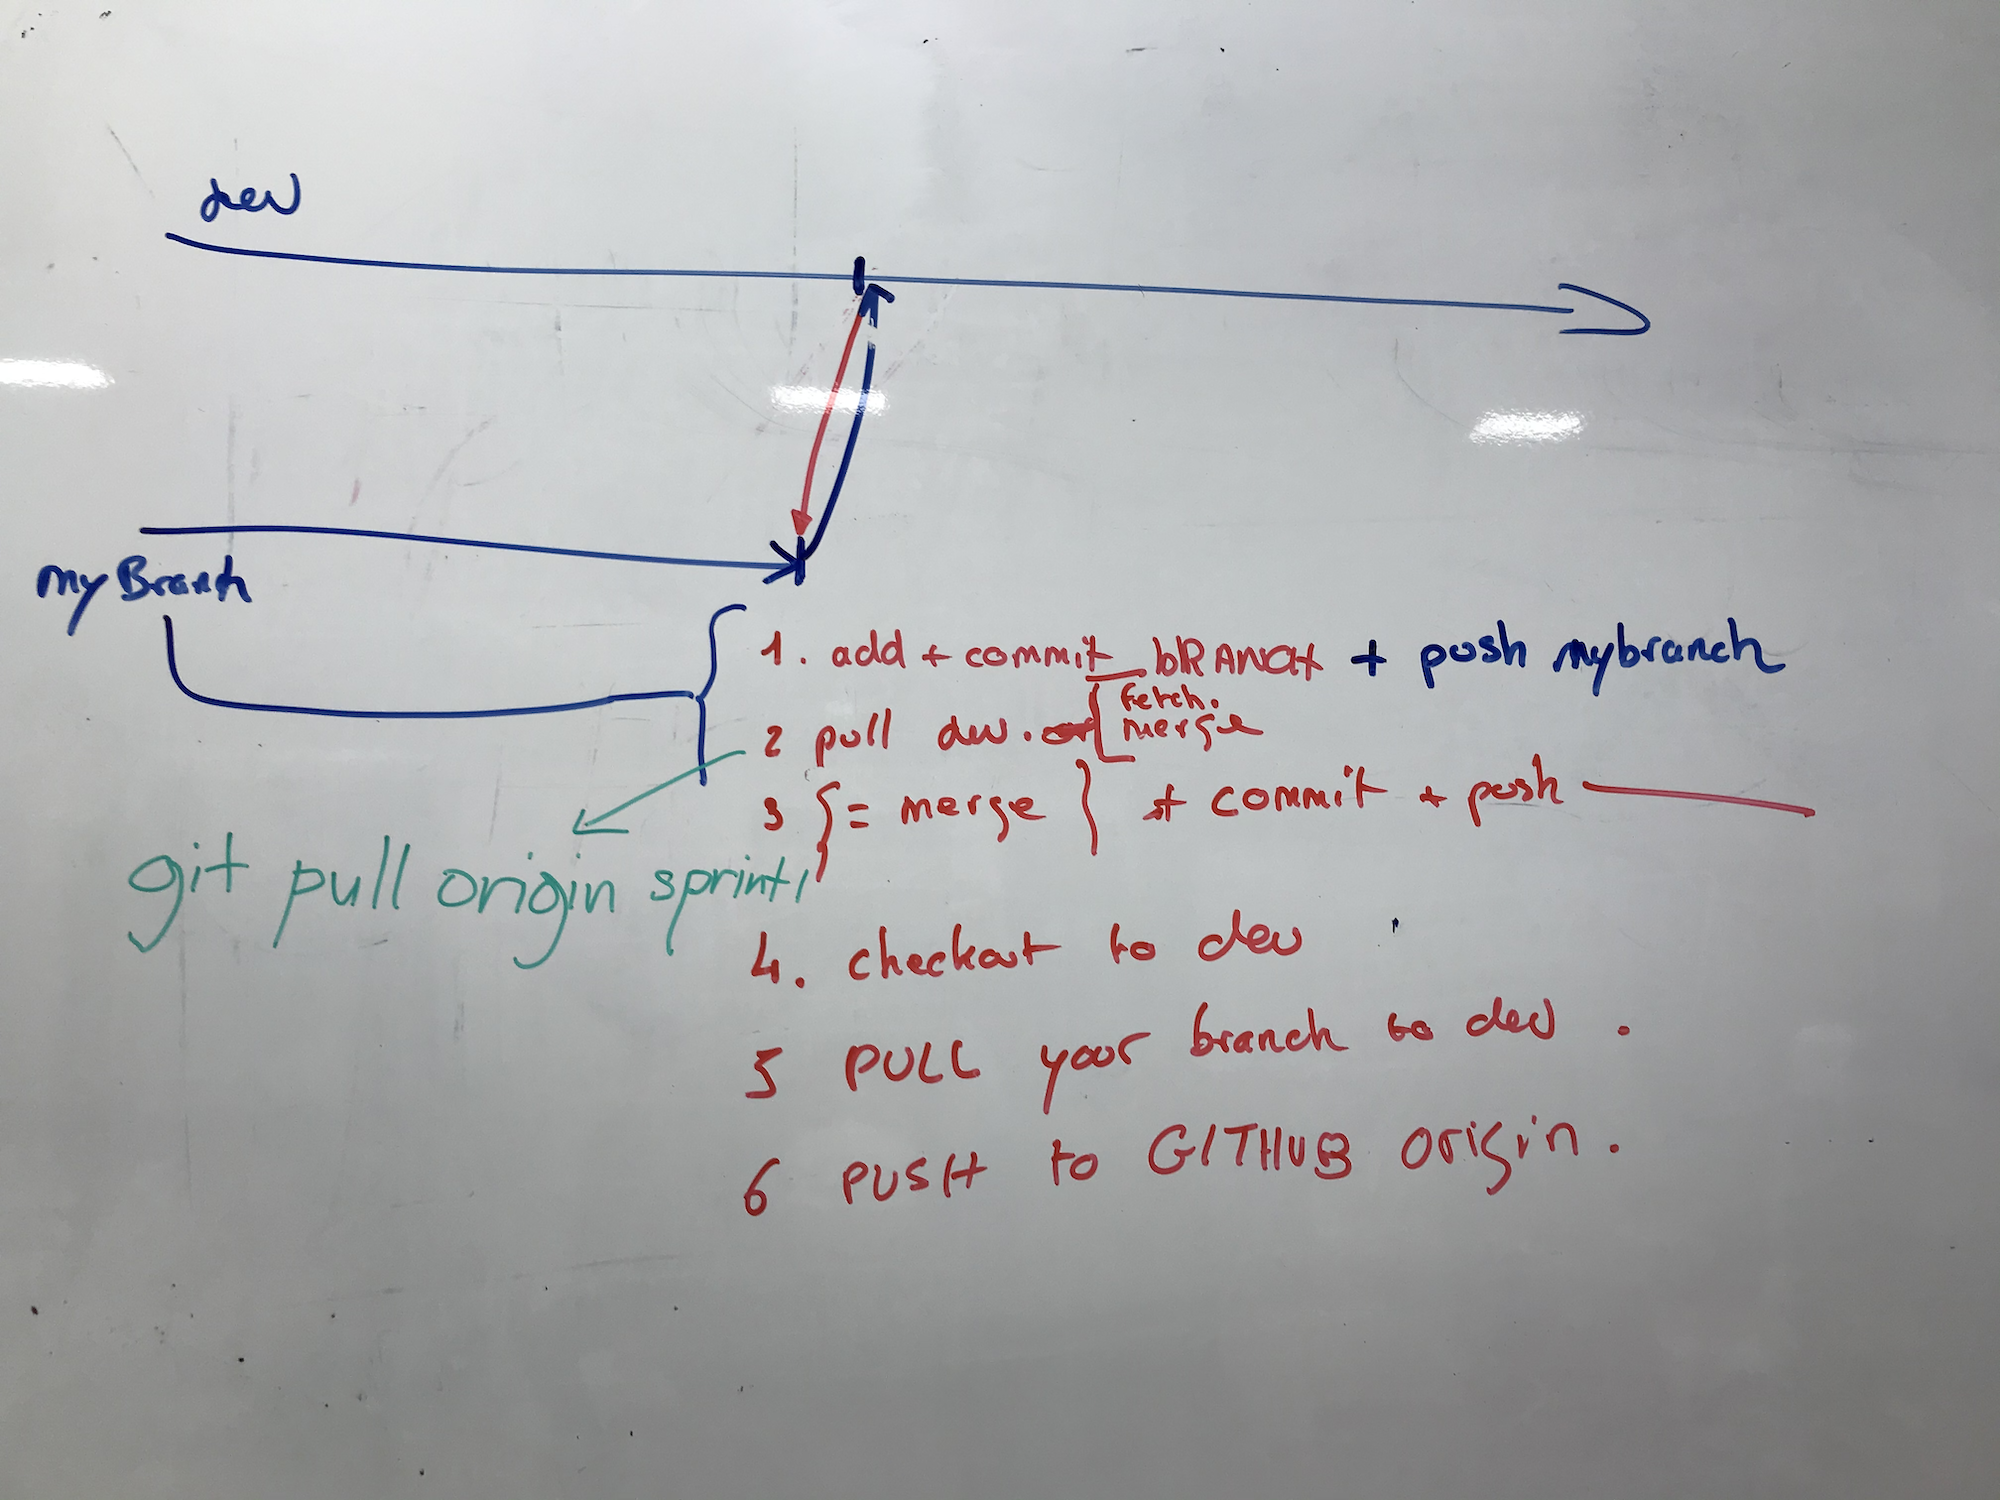 dev
my Branch
1. add + commit bRANCH + push mybranch
2 pull dev. or [ Fetch.
merge
3 { = merge } + commit + push
git pull origin sprint1
4. checkout to dev
5 PULL your branch to dev .
6 PUSH to GITHUB origin .